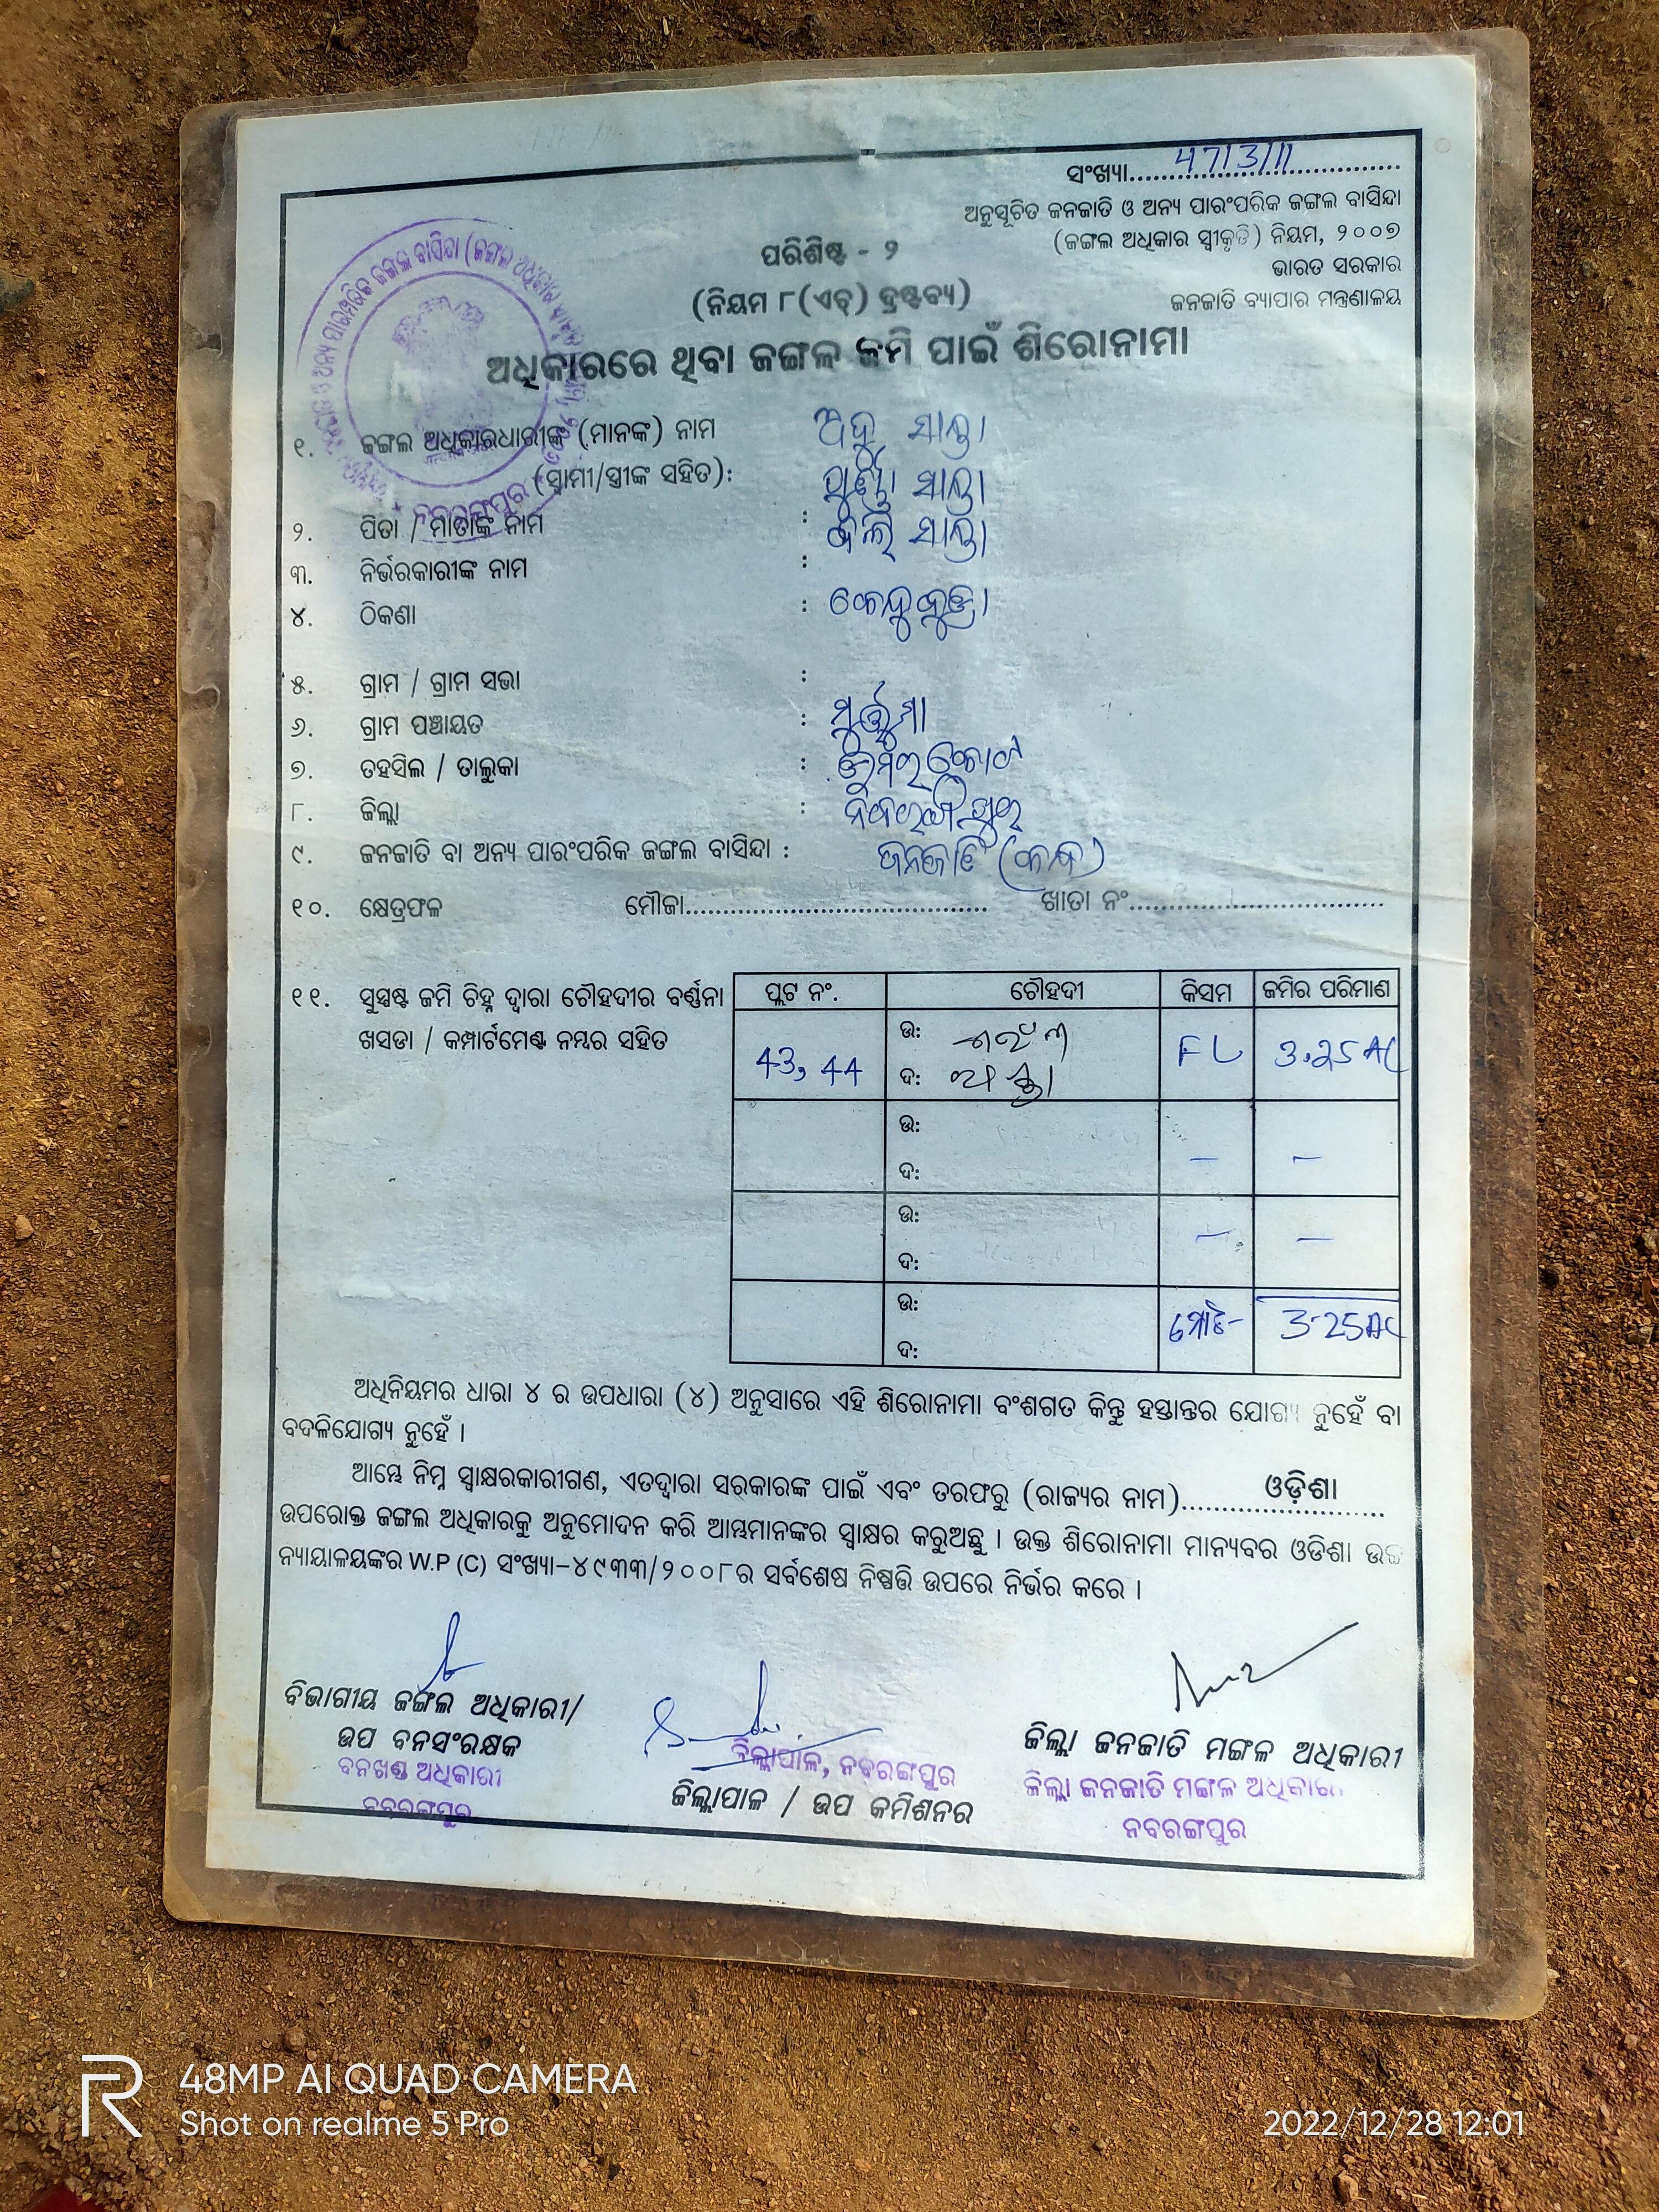 ସଂଖ୍ୟା.......4713/11.......
ଅନୁସୂଚିତ ଜନଜାତି ଓ ଅନ୍ୟ ପାରଂପରିକ ଜଙ୍ଗଲ ବାସିନ୍ଦା
(ଜଙ୍ଗଲ ଅଧିକାର ସ୍ୱୀକୃତି) ନିୟମ, ୨୦୦୭
ଭାରତ ସରକାର
ଜନଜାତି ବ୍ୟାପାର ମନ୍ତ୍ରଣାଳୟ
ପରିଶିଷ୍ଟ - ୨
(ନିୟମ ୮(ଏଚ୍) ଦ୍ରଷ୍ଟବ୍ୟ)
ଅଧିକାରରେ ଥିବା ଜଙ୍ଗଲ ଜମି ପାଇଁ ଶିରୋନାମା
୧. ଜଙ୍ଗଲ ଅଧିକାରଧାରୀଙ୍କ (ମାନଙ୍କ) ନାମ
(ସ୍ୱାମୀ/ସ୍ତ୍ରୀଙ୍କ ସହିତ):
୨. ପିତା / ମାତାଙ୍କ ନାମ :
୩. ନିର୍ଭରକାରୀଙ୍କ ନାମ :
୪. ଠିକଣା :
୫. ଗ୍ରାମ / ଗ୍ରାମ ସଭା :
୬. ଗ୍ରାମ ପଞ୍ଚାୟତ :
୭. ତହସିଲ / ତାଲୁକା : ଉମରକୋଟ
୮. ଜିଲ୍ଲା : ନବରଙ୍ଗପୁର
୯. ଜନଜାତି ବା ଅନ୍ୟ ପାରଂପରିକ ଜଙ୍ଗଲ ବାସିନ୍ଦା : ଜନଜାତି
୧୦. କ୍ଷେତ୍ରଫଳ ମୌଜା.................... ଖାତା ନଂ....................
୧୧. ସୁସ୍ପଷ୍ଟ ଜମି ଚିହ୍ନ ଦ୍ୱାରା ଚୌହଦୀର ବର୍ଣ୍ଣନା
ଖସଡା / କମ୍ପାର୍ଟମେଣ୍ଟ ନମ୍ବର ସହିତ
ପ୍ଲଟ ନଂ. ଚୌହଦୀ କିସମ ଜମିର ପରିମାଣ
43, 44 ଉ: FL 3.25 AC
ଦ:
ଉ:
ଦ: – –
ଉ: – –
ଦ:
ଉ: ମୋଟ- 3.25AC
ଦ:
ଅଧିନିୟମର ଧାରା ୪ ର ଉପଧାରା (୪) ଅନୁସାରେ ଏହି ଶିରୋନାମା ବଂଶଗତ କିନ୍ତୁ ହସ୍ତାନ୍ତର ଯୋଗ୍ୟ ନୁହେଁ ବା
ବଦଳିଯୋଗ୍ୟ ନୁହେଁ ।
ଆମ୍ଭେ ନିମ୍ନ ସ୍ୱାକ୍ଷରକାରୀଗଣ, ଏତଦ୍ୱାରା ସରକାରଙ୍କ ପାଇଁ ଏବଂ ତରଫରୁ (ରାଜ୍ୟର ନାମ).......ଓଡ଼ିଶା.......
ଉପରୋକ୍ତ ଜଙ୍ଗଲ ଅଧିକାରକୁ ଅନୁମୋଦନ କରି ଆମ୍ଭମାନଙ୍କର ସ୍ୱାକ୍ଷର କରୁଅଛୁ । ଉକ୍ତ ଶିରୋନାମା ମାନ୍ୟବର ଓଡିଶା ଉଚ୍ଚ
ନ୍ୟାୟାଳୟଙ୍କର W.P (C) ସଂଖ୍ୟା-୪୯୩୩/୨୦୦୮ର ସର୍ବଶେଷ ନିଷ୍ପତ୍ତି ଉପରେ ନିର୍ଭର କରେ ।
ବିଭାଗୀୟ ଜଙ୍ଗଲ ଅଧିକାରୀ/
ଉପ ବନସଂରକ୍ଷକ
ବନଖଣ୍ଡ ଅଧିକାରୀ
ନବରଙ୍ଗପୁର
ଜିଲ୍ଲାପାଳ, ନବରଙ୍ଗପୁର
ଜିଲ୍ଲାପାଳ / ଉପ କମିଶନର
ଜିଲ୍ଲା ଜନଜାତି ମଙ୍ଗଳ ଅଧିକାରୀ
ଜିଲ୍ଲା ଜନଜାତି ମଙ୍ଗଳ ଅଧିକାରୀ
ନବରଙ୍ଗପୁର
48MP AI QUAD CAMERA
Shot on realme 5 Pro
2022/12/28 12:01